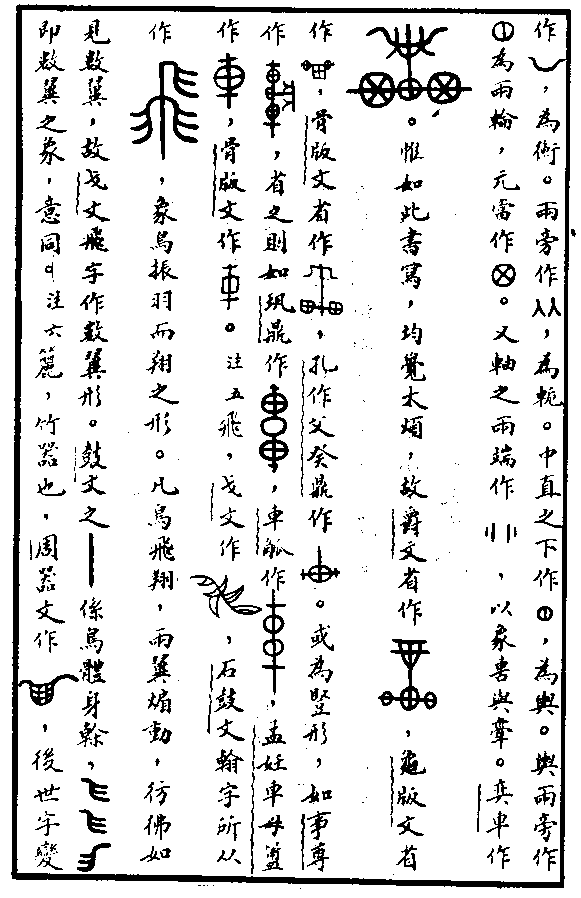 作，為衡。兩旁作，為軛。中直之下作，為輿。輿兩旁作
為兩輪，亢當作。又軸之兩端作，以象軎與舝。車作
。惟如此書寫，均覺太煩，故爵文省作，龜版文省
作，骨版文省作，孔作父癸鼎作。或為豎形，如事尊
作，省之則如鼎作，車觚作，孟妊車母盤
作，骨版文作。注五飛，戈文作，石鼓文翰字所从
作，象鳥振羽而翔之形。凡鳥飛翔，兩翼煽動，彷彿如
見數翼，故戈文飛字作數翼形。鼓文之係鳥體身榦，
即數翼之象，意同。注六簏，竹器也，周器文作，後世字變